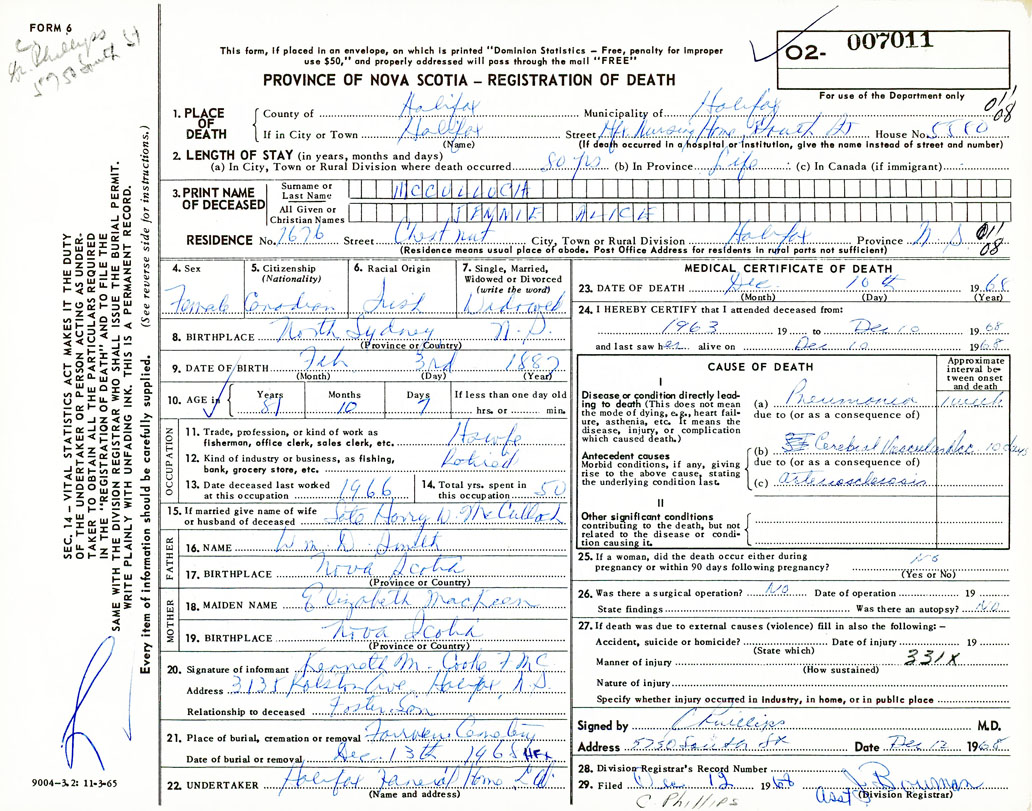 FORM 6
C
Dr. Phillips
5750 South St
This form, if placed in an envelope, on which is printed "Dominion Statistics – Free, penalty for improper
use $50," and properly addressed will pass through the mail "FREE"
PROVINCE OF NOVA SCOTIA – REGISTRATION OF DEATH
02- 007011
For use of the Department only
011
08
1. PLACE OF DEATH
County of Halifax Municipality of Halifax
If in City or Town Halifax Street Hfx. Nursing Home, South St House No. 5510
(Name) (If death occurred in a hospital or institution, give the name instead of street and number)
2. LENGTH OF STAY (in years, months and days)
(a) In City, Town or Rural Division where death occurred 50 yrs (b) In Province Life (c) In Canada (if immigrant)
3. PRINT NAME OF DECEASED
Surname or Last Name MCCULLOCH
All Given or Christian Names JENNIE ALICE
RESIDENCE No. 2676 Street Chestnut City, Town or Rural Division Halifax Province N.S. 011
08
(Residence means usual place of abode. Post Office Address for residents in rural parts not sufficient)
4. Sex Female
5. Citizenship (Nationality) Canadian
6. Racial Origin Irish
7. Single, Married, Widowed or Divorced (write the word) Widowed
8. BIRTHPLACE North Sydney N.S.
(Province or Country)
9. DATE OF BIRTH Feb 3rd 1887
(Month) (Day) (Year)
10. AGE in Years 81 Months 10 Days 7 If less than one day old hrs. or min.
OCCUPATION
11. Trade, profession, or kind of work as fisherman, office clerk, sales clerk, etc. Hswfe
12. Kind of industry or business, as fishing, bank, grocery store, etc. Retired
13. Date deceased last worked at this occupation 1966
14. Total yrs. spent in this occupation 50
15. If married give name of wife or husband of deceased Late Harry W. McCulloch
FATHER
16. NAME Wm. D.
17. BIRTHPLACE Nova Scotia
(Province or Country)
MOTHER
18. MAIDEN NAME Elizabeth MacKeen
19. BIRTHPLACE Nova Scotia
(Province or Country)
20. Signature of informant Kenneth M. Cooke
Address 3135 Ralston Ave, Halifax, N.S.
Relationship to deceased Foster Son
21. Place of burial, cremation or removal Fairview Cemetery
Date of burial or removal Dec. 13th 1968 HFX
22. UNDERTAKER Halifax Funeral Home Ltd.
(Name and address)
MEDICAL CERTIFICATE OF DEATH
23. DATE OF DEATH Dec. 10th 1968
(Month) (Day) (Year)
24. I HEREBY CERTIFY that I attended deceased from:
1963 19 to Dec 10 1968
and last saw her alive on Dec 10 1968
CAUSE OF DEATH
Approximate interval between onset and death
I
Disease or condition directly leading to death (This does not mean the mode of dying, e.g., heart failure, asthenia, etc. It means the disease, injury, or complication which caused death.)
(a) Pneumonia 1 week
due to (or as a consequence of)
Antecedent causes
Morbid conditions, if any, giving rise to the above cause, stating the underlying condition last.
(b) Cerebral Vascular Acc. 10 days
due to (or as a consequence of)
(c) arteriosclerosis
II
Other significant conditions contributing to the death, but not related to the disease or condition causing it.
25. If a woman, did the death occur either during pregnancy or within 90 days following pregnancy? No
(Yes or No)
26. Was there a surgical operation? No Date of operation 19
State findings Was there an autopsy? No
27. If death was due to external causes (violence) fill in also the following: –
Accident, suicide or homicide? Date of injury 19
(State which)
Manner of injury 331X
(How sustained)
Nature of injury
Specify whether injury occurred in industry, in home, or in public place
Signed by C Phillips M.D.
Address 5750 South St Date Dec 12 1968
28. Division Registrar's Record Number
29. Filed Dec 12 1968 Asst J. Bowman
(Division Registrar)
C PHILLIPS
SEC. 14 – VITAL STATISTICS ACT MAKES IT THE DUTY
OF THE UNDERTAKER OR PERSON ACTING AS UNDER-
TAKER TO OBTAIN ALL THE PARTICULARS REQUIRED
IN THE "REGISTRATION OF DEATH" AND TO FILE THE
SAME WITH THE DIVISION REGISTRAR WHO SHALL ISSUE THE BURIAL PERMIT.
WRITE PLAINLY WITH UNFADING INK. THIS IS A PERMANENT RECORD.
Every item of information should be carefully supplied. (See reverse side for instructions.)
9004–3.2: 11-3-65